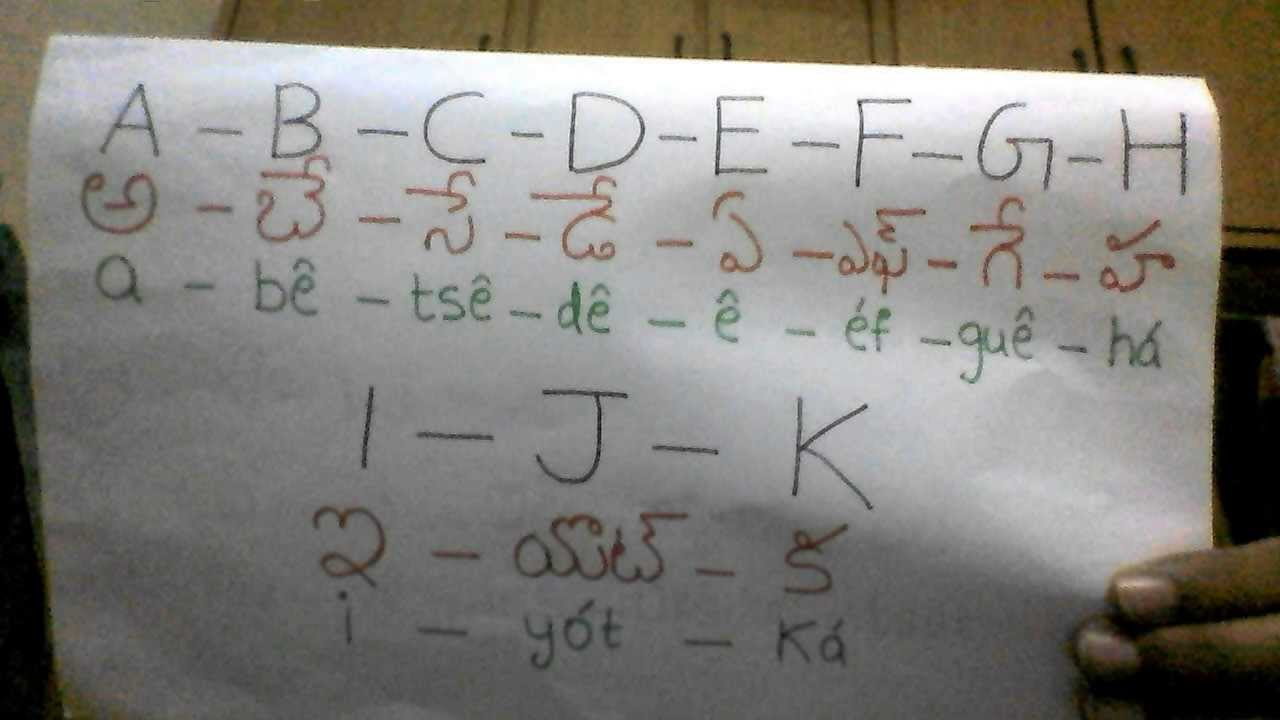 A - B - C - D - E - F - G - H
అ - బే - సే - డే - ఏ - ఎఫ్ - గే - హా
a - bê - tsê - dê - ê - éf - guê - há
I - J - K
ఇ - యొట్ - క
i - yót - Ká